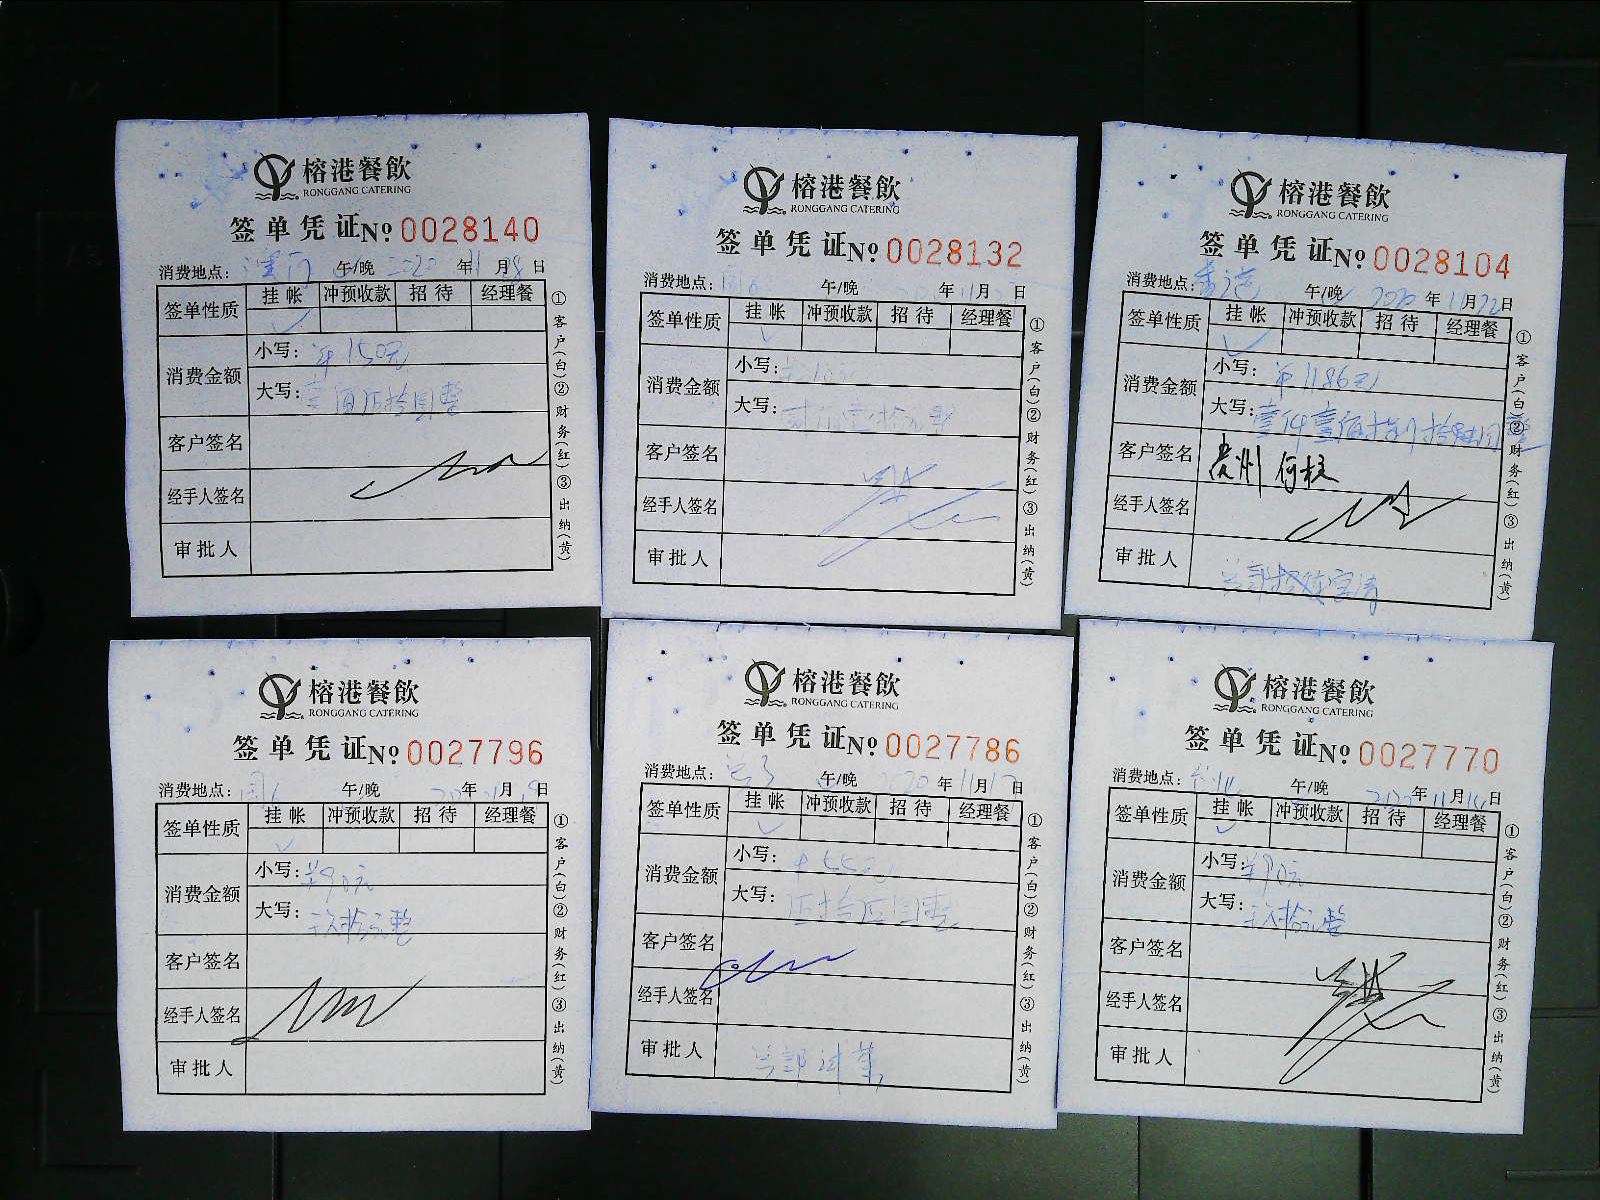 榕港餐飲
RONGGANG CATERING
签单凭证 № 0028140
消费地点: 午/晚 2020年11月8日
签单性质 挂帐 冲预收款 招待 经理餐
✓
消费金额 小写: 150元
大写: 壹佰伍拾圆整
客户签名
经手人签名
审批人
①客户(白)②财务(红)③出纳(黄)
榕港餐飲
RONGGANG CATERING
签单凭证 № 0028132
消费地点: 午/晚 年11月 日
签单性质 挂帐 冲预收款 招待 经理餐
✓
消费金额 小写:
大写:
客户签名
经手人签名
审批人
①客户(白)②财务(红)③出纳(黄)
榕港餐飲
RONGGANG CATERING
签单凭证 № 0028104
消费地点: 午/晚 2020年11月22日
签单性质 挂帐 冲预收款 招待 经理餐
✓
消费金额 小写: 1186元
大写: 壹仟壹佰捌拾陆圆整
客户签名 贵州
经手人签名
审批人
①客户(白)②财务(红)③出纳(黄)
榕港餐飲
RONGGANG CATERING
签单凭证 № 0027796
消费地点: 午/晚 年 月 日
签单性质 挂帐 冲预收款 招待 经理餐
✓
消费金额 小写: ¥90元
大写: 玖拾元整
客户签名
经手人签名
审批人
①客户(白)②财务(红)③出纳(黄)
榕港餐飲
RONGGANG CATERING
签单凭证 № 0027786
消费地点: 午/晚 2020年11月17日
签单性质 挂帐 冲预收款 招待 经理餐
✓
消费金额 小写: 55元
大写: 伍拾伍圆整
客户签名
经手人签名
审批人 总部
①客户(白)②财务(红)③出纳(黄)
榕港餐飲
RONGGANG CATERING
签单凭证 № 0027770
消费地点: 午/晚 2020年11月14日
签单性质 挂帐 冲预收款 招待 经理餐
✓
消费金额 小写: ¥90元
大写: 玖拾元整
客户签名
经手人签名
审批人
①客户(白)②财务(红)③出纳(黄)